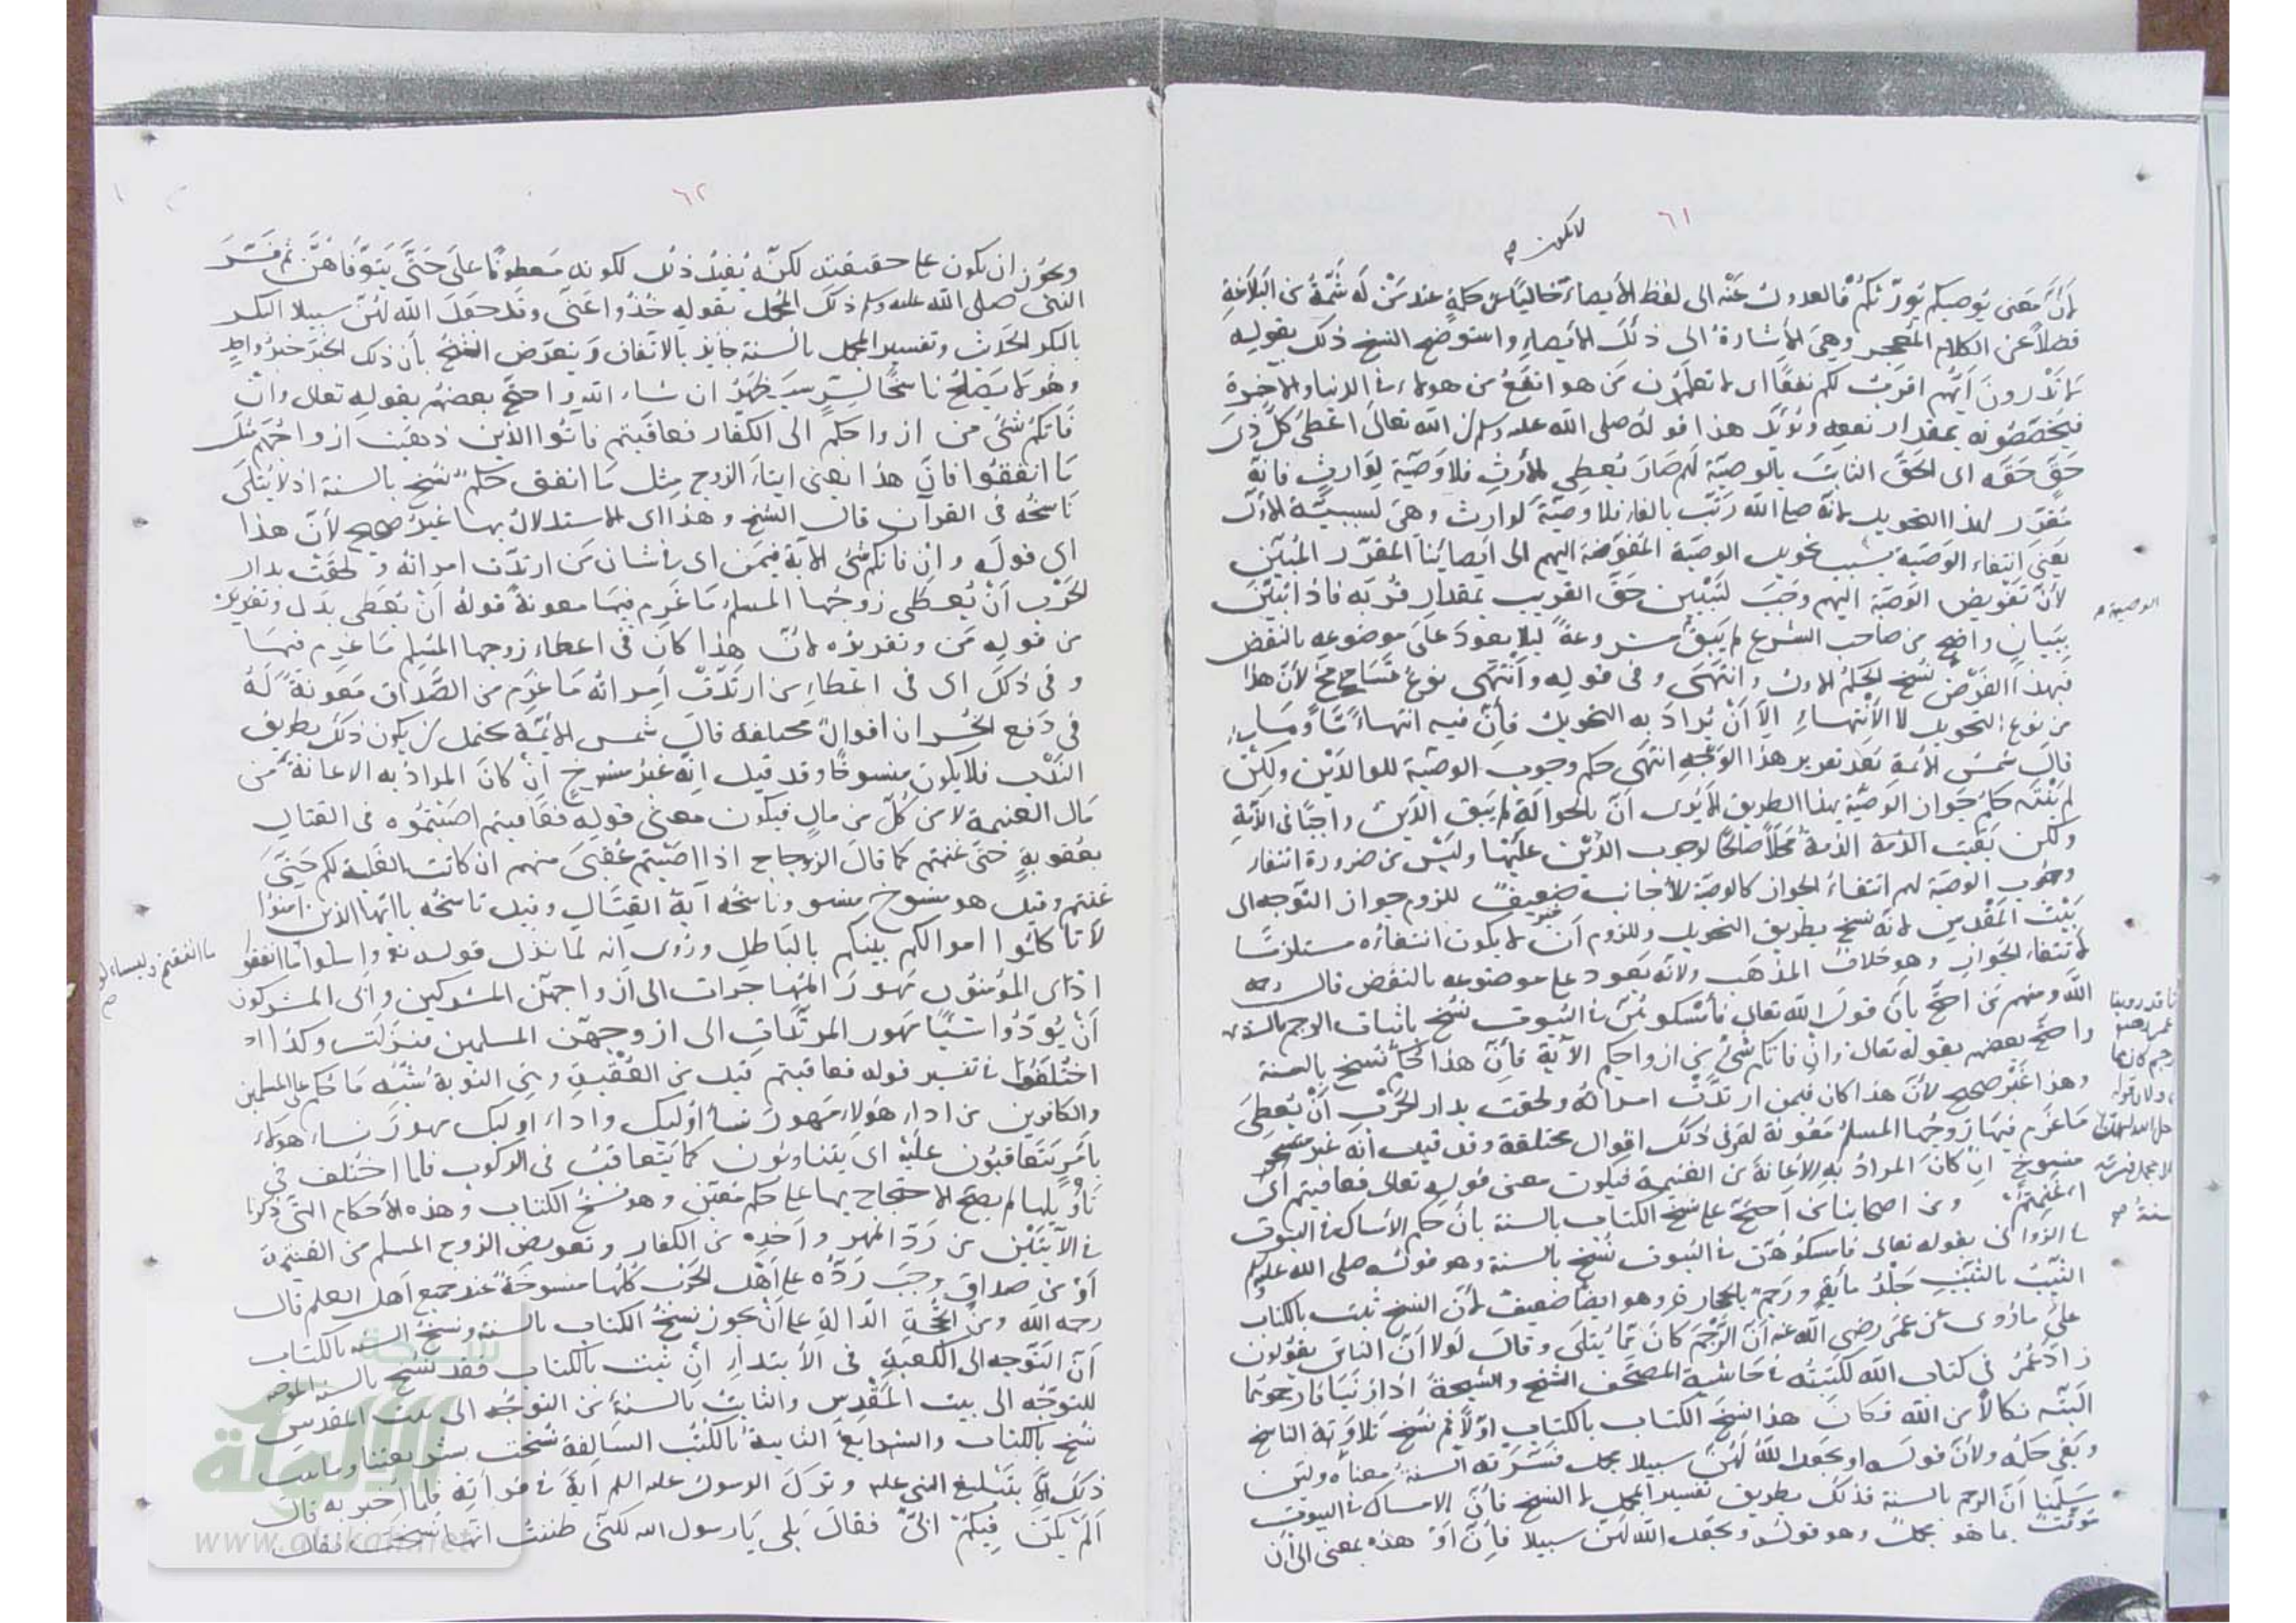 ٦١
لا يكون
لأن معنى يوصيكم يورثكم فالعدول عنه الى لفظ الأيصاء خاليا عن حكمة عند من له شمة من البلاغة
فضلا عن الكلام المعجز وهي الأشارة الى ذلك الأيصاء واستوضح الشيخ ذلك بقوله
لا تدرون أيهم اقرب لكم نفعا اى لا تعلمون من هو انفع من هولاء في الدنيا والاخرة
فيخصصونه بمقدار نفعه ويؤيد هذا قوله صلى الله عليه وسلم ان الله تعالى اعطى كل ذى
حق حقه اى الحق الثابت بالوصية لهم صار يعطى للأرث فلا وصية لوارث فانه
مقرر لهذا التحويل لانه صلى الله رتب بالفاء فلا وصية لوارث وهي لسببية الأول
يعنى انتفاء الوصية بسبب تحويل الوصية المفوضة اليهم الى ايصائنا المقرر المبين
لأن تفويض الوصية اليهم وجب لتبيين حق القريب بمقدار قربه فاذا تبين
ببيان واضح من صاحب الشرع لم يبق مشروعة ليلا يعود على موضوعه بالنقض
فبهذا الفرض نسخ الحكم الاول وانتهى وفى قوله وانتهى نوع تسامح لأن هذا
من نوع التحويل لا الأنتهاء الا أن يراد به التحويل فأن فيه انتهاء
قال شمس الأئمة بعد تقرير هذا الوجه انتهى حكم وجوب الوصية للوالدين ولكن
لم ينته حكم جواز الوصية بهذا الطريق ألا يرى أن بالحوالة لم يبق الدين واجبا فى الذمة
ولكن بقيت الذمة الذمة محلا صالحا لوجوب الدين عليها وليس من ضرورة انتفاء
وجوب الوصية لهم انتفاء الجواز كالوصية للأجانب ضعيف للزوم جواز التوجه الى
بيت المقدس لانه نسخ بطريق التحويل وللزوم أن لا يكون انتفاؤه مستلزما
لانتفاء الجواز وهو خلاف المذهب ولأنه يعود على موضوعه بالنقض قال رحمه
الله ومنهم من احتج بأن قول الله تعالى فأمسكوهن في البيوت نسخ باثبات الرجم بالسنة
واحتج بعضهم بقوله تعالى وان فاتكم شئ من ازواجكم الآية فأن هذا حكم نسخ بالسنة
وهذا غير صحيح لأن هذا كان فيمن ارتدت امراته ولحقت بدار الحرب أن يعطى
ما غرم فيها زوجها المسلم معونة له وفى ذلك اقوال مختلفة وقد قيل أنه غير
منسوخ ان كان المراد به الأعانة من الغنيمة فيكون معنى قوله تعالى فعاقبتم اى
غنمتم ومن اصحابنا من احتج على نسخ الكتاب بالسنة بأن حكم الأمساك في البيوت
في الزوانى بقوله تعالى فامسكوهن في البيوت نسخ بالسنة وهو قوله صلى الله عليه وسلم
الثيب بالثيب جلد مأية ورجم بالحجارة وهو ايضا ضعيف لأن النسخ ثبت بالكتاب
على ما روى عن عمر رضى الله عنه أن الرجم كان مما يتلى وقال لولا أن الناس يقولون
زاد عمر فى كتاب الله لكتبته في حاشية المصحف الشيخ والشيخة اذا زنيا فارجموهما
البتة نكالا من الله فكان هذا نسخ الكتاب بالكتاب اولا ثم نسخ تلاوة الناسخ
وبقى حكمه ولأن قوله او يجعل الله لهن سبيلا مجمل فسرته السنة معناه ولئن
سلمنا أن الرجم بالسنة فذلك بطريق تفسير المجمل لا النسخ فأن الامساك في البيوت
مؤقت بما هو مجمل وهو قوله ويجعل الله لهن سبيلا فأن أو هذه بمعنى الى أن
الوصية
٦٢
ويجوز ان يكون على حقيقته لكنه يفيد ذلك لكونه معطوفا على حتى يتوفاهن ثم فسر
النبى صلى الله عليه وسلم ذلك المجمل بقوله خذوا عنى وقد جعل الله لهن سبيلا البكر
بالبكر الحديث وتفسير المجمل بالسنة جايز بالاتفاق ولم يتعرض الشيخ بأن ذلك الخبر خبر واحد
وهو لا يصلح ناسخا لسر سيظهر ان شاء الله واحتج بعضهم بقوله تعالى وان
فاتكم شئ من ازواجكم الى الكفار فعاقبتم فاتوا الذين ذهبت ازواجهم مثل
ما انفقوا فان هذا يعنى ايتاء الزوج مثل ما انفق حكم نسخ بالسنة اذ لا يتلى
ناسخه فى القرآن قال الشيخ وهذا اى الاستدلال بها غير صحيح لأن هذا
اى قوله وان فاتكم شئ الآية فيمن اى في شان من ارتدت امراته ولحقت بدار
الحرب أن يعطى زوجها المسلم ما غرم فيها معونة قوله أن يعطى بدل
من قوله من وتقديره لأن هذا كان فى اعطاء زوجها المسلم ما غرم فيها
وفى ذلك اى فى اعطاء من ارتدت امراته ما غرم من الصداق معونة له
فى دفع الخسران اقوال مختلفة قال شمس الأئمة يحتمل ان يكون ذلك بطريق
الندب فلا يكون منسوخا وقد قيل انه غير منسوخ ان كان المراد به الاعانة من
مال الغنيمة لا من كل من مال فيكون معنى قوله فعاقبتم اصبتموه فى القتال
بعقوبة حتى غنمتم كما قال الزجاج اذا اصبتم عقبى منهم ان كانت الغلبة لكم حتى
غنمتم وقيل هو منسوخ وناسخه آية القتال وقيل ناسخه يا ايها الذين امنوا
لا تاكلوا اموالكم بينكم بالباطل وروى انه لما نزل قوله تعالى واسألوا ما انفقتم
ادى المؤمنون مهور المهاجرات الى أزواجهن المشركين وابى المشركون
أن يؤدوا شيئا من مهور المرتدات الى ازواجهن المسلمين فنزلت وكذا
اختلفوا في تفسير قوله فعاقبتم قيل من العقبة وهى النوبة شبه ما حكم على المسلمين
والكافرين من اداء هؤلاء مهور نسأ اوليك واداء اوليك مهور نساء هولاء
بأمر يتعاقبون عليه اى يتناوبون كما يتعاقب فى الركوب فلما اختلف فى
تأويلها لم يصح الاحتجاج بها على حكم معين وهو نسخ الكتاب وهذه الأحكام التى ذكرنا
في الآيتين من رد المهر واخذه من الكفار وتعويض الزوج المسلم من الغنيمة
أو من صداق وجب رده على أهل الحرب كلها منسوخة عند جميع أهل العلم قال
رحمه الله ومن الحجة الدالة على أن يجوز نسخ الكتاب بالسنة ونسخ السنة بالكتاب
أن التوجه الى الكعبة فى الأبتداء ان ثبت بالكتاب فقد نسخ بالسنة الموجبة
للتوجه الى بيت المقدس والثابت بالسنة من التوجه الى بيت المقدس
نسخ بالكتاب والشرايع الثابتة بالكتب السالفة نسخت بشريعتنا وما ثبت
ذلك الا بتبليغ النبى عليه وترك الرسول عليه السلم آية في قرأته فلما اخبر به قال
ألم يكن فيكم ابى فقال بلى يا رسول الله لكنى ظننت انها نسخت فقال
ما انفقتم وليسألوا
شبكة
الألوكة
www.alukah.net